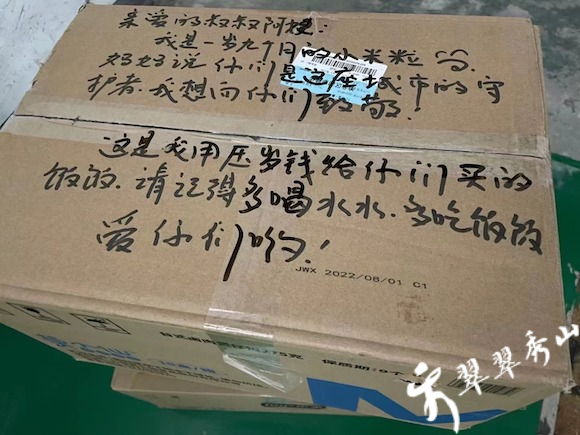 亲爱的叔叔阿姨:
我是一岁九个月的小米粒
妈妈说你们是这座城市的守
护者.我想向你们致敬!
这是我用压岁钱给你们买的
饭饭.请记得多喝水水.多吃饭饭
爱你们哟!
JWX 2022/08/01 C1
保质期:9个
翠翠秀山